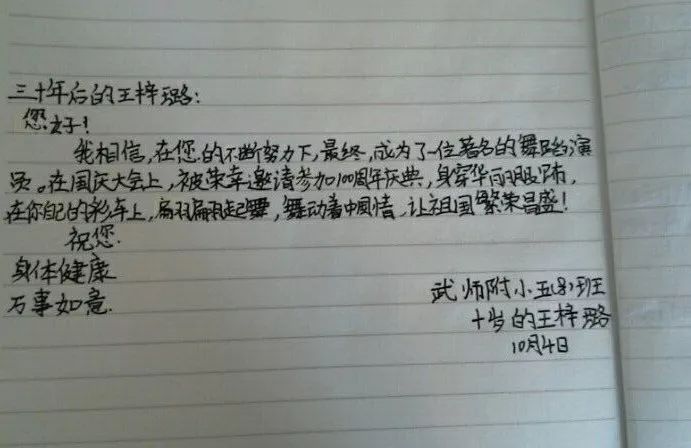 三十年后的王梓璐：
您好！
我相信，在您的不断努力下，最终，成为了一位著名的舞蹈演
员。在国庆大会上，被荣幸邀请参加100周年庆典，身穿华丽服饰，
在你自己的彩车上，翩翩起舞，舞动着中国情，让祖国繁荣昌盛！
祝您
身体健康
万事如意.
武师附小五（3）班
十岁的王梓璐
10月4日